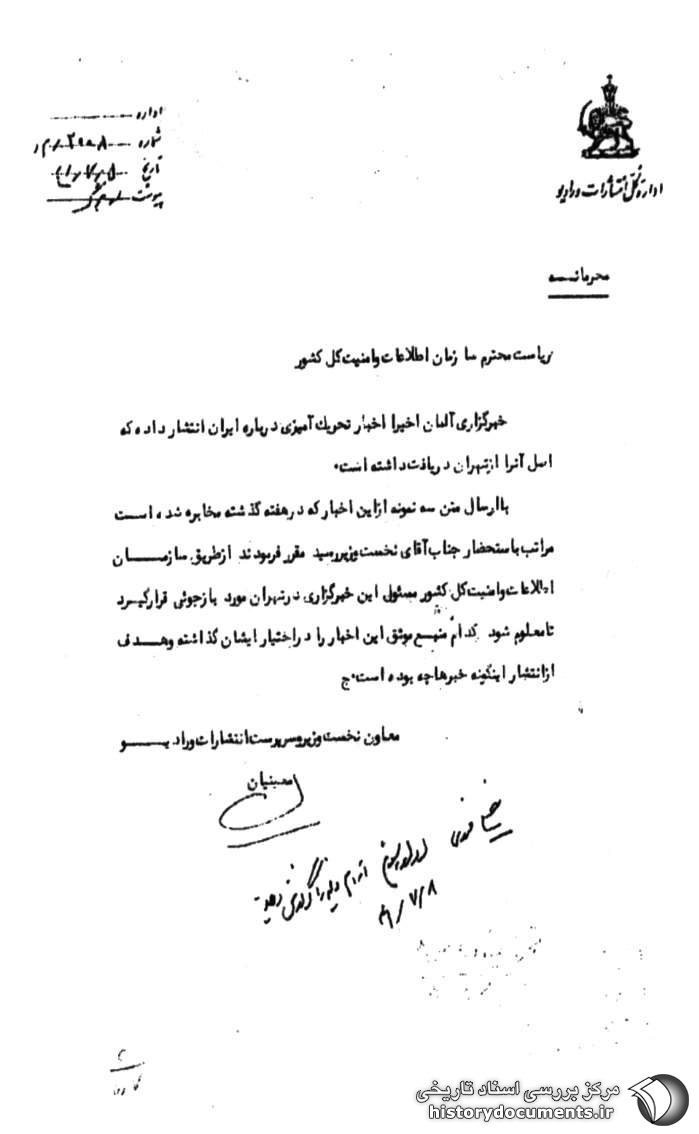 اداره
شماره
تاریخ
پیوست
اداره کل انتشارات و رادیو
محرمانه
ریاست محترم سازمان اطلاعات و امنیت کل کشور
خبرگزاری آلمان اخیرا اخبار تحریک آمیزی درباره ایران انتشار داده که
اصل آنرا از تهران دریافت داشته است.
با ارسال متن سه نمونه از این اخبار که در هفته گذشته مخابره شده است
مراتب باستحضار جناب آقای نخست وزیر رسید مقرر فرمودند از طریق سازمان
اطلاعات و امنیت کل کشور مسئول این خبرگزاری در تهران مورد بازجوئی قرار گیرد
تا معلوم شود کدام منبع موثق این اخبار را در اختیار ایشان گذاشته و هدف
از انتشار اینگونه خبرها چه بوده است. ج
معاون نخست وزیر و سرپرست انتشارات و رادیو
معینیان
۴۱/۷/۸
مرکز بررسی اسناد تاریخی
historydocuments.ir